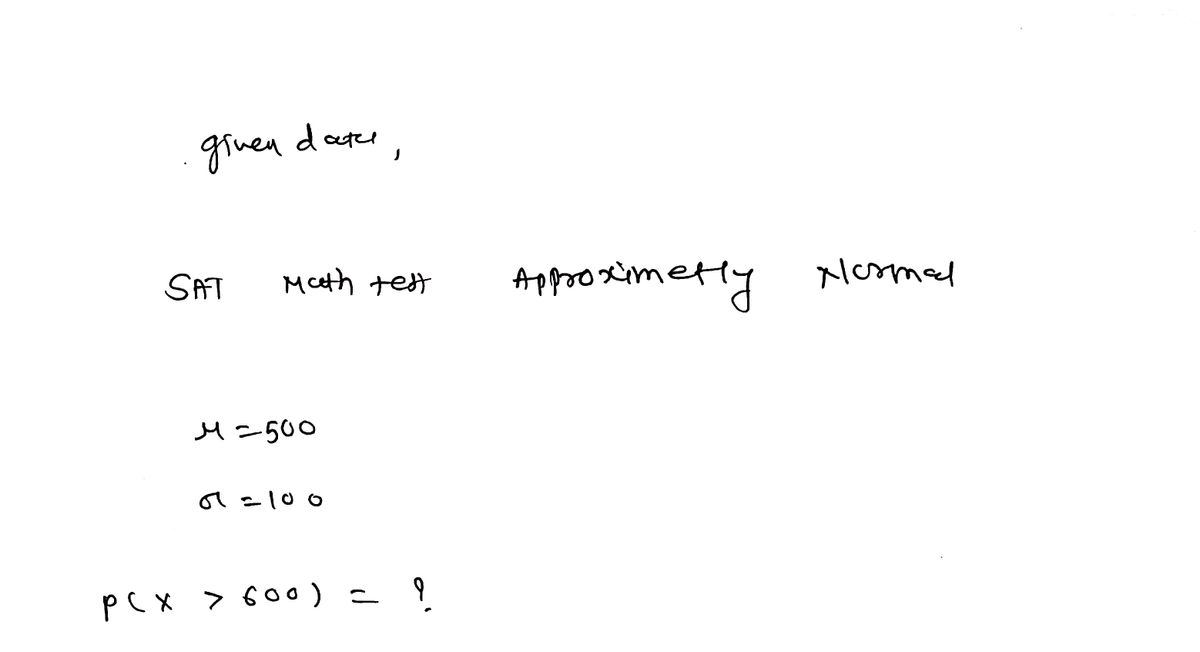 given data,
SAT Math test Approximetly Normal
μ = 500
σ = 100
P(X > 600) = ?